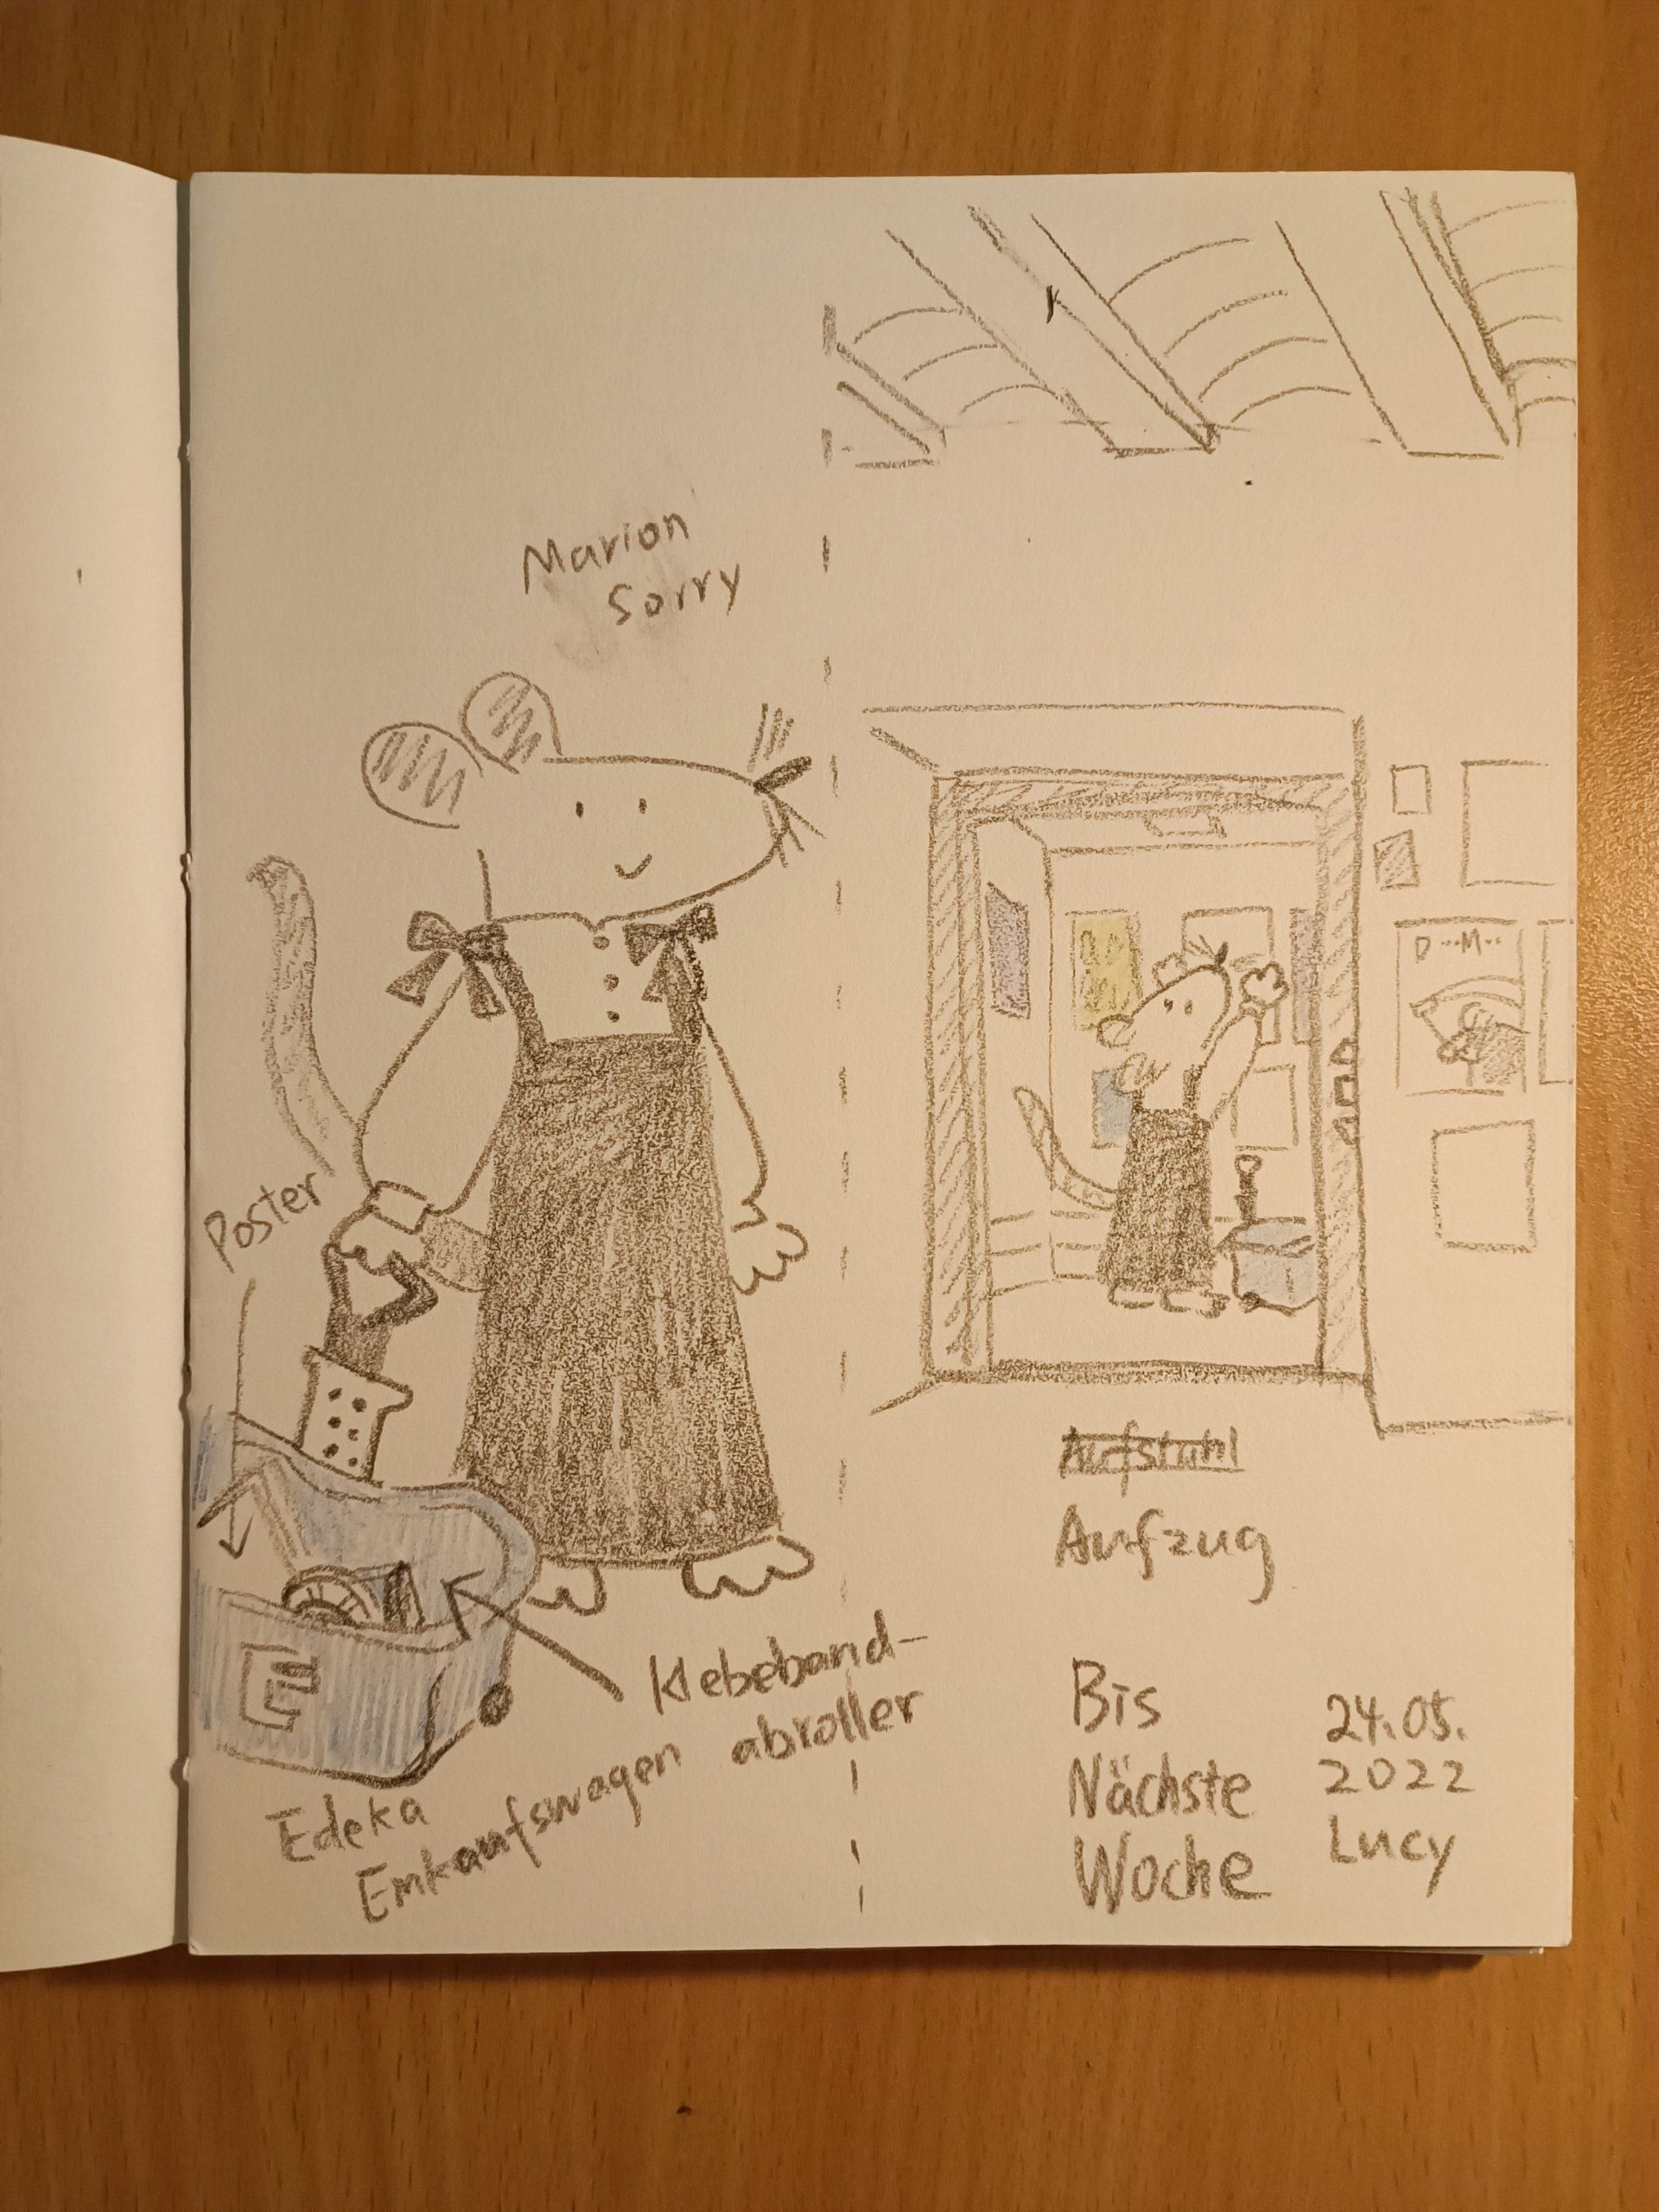 Marion
Sorry
Poster
Klebeband-
abroller
Edeka
Einkaufswagen
E
D...M..
Aufstuhl
Aufzug
Bis
Nächste
Woche
24.05.
2022
Lucy